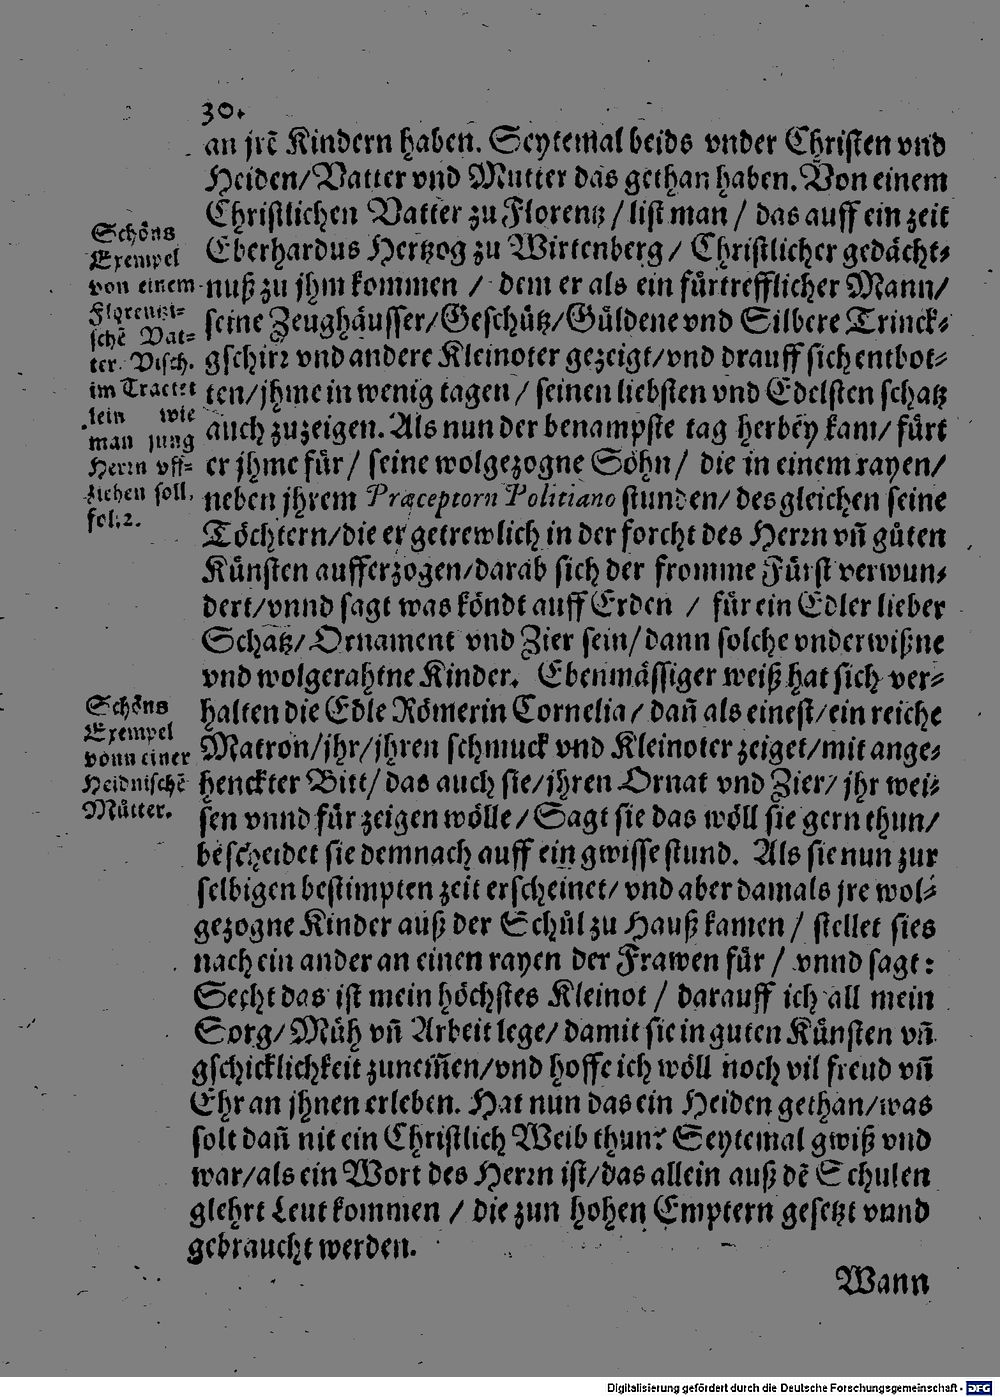 30.
an jrē Kindern haben. Seytemal beids vnder Christen vnd
Heiden/Vatter vnd Mutter das gethan haben. Von einem
Christlichen Vatter zu Florentz/list man/das auff ein zeit
Eberhardus Hertzog zu Wirtenberg/Christlicher gedächt-
nuß zu jhm kommen/dem er als ein fürtrefflicher Mann/
seine Zeughäusser/Geschütz/Güldene vnd Silbere Trinck-
gschirr vnd andere Kleinoter gezeigt/vnd drauff sich entbot-
ten/jhme in wenig tagen/seinen liebsten vnd Edelsten schatz
auch zuzeigen. Als nun der benampste tag herbey kam/fürt
er jhme für/seine wolgezogne Söhn/die in einem rayen/
neben jhrem Præceptorn Politiano stunden/desgleichen seine
Töchtern/die er getrewlich in der forcht des Herrn vn̄ gůten
Künsten aufferzogen/darab sich der fromme Fürst verwun-
dert/vnnd sagt was köndt auff Erden/für ein Edler lieber
Schatz/Ornament vnd Zier sein/dann solche vnderwißne
vnd wolgerahtne Kinder. Ebenmässiger weiß hat sich ver-
halten die Edle Römerin Cornelia/dan̄ als einest/ein reiche
Matron/jhr/jhren schmuck vnd Kleinoter zeiget/mit ange-
henckter Bitt/das auch sie/jhren Ornat vnd Zier/jhr wei-
sen vnnd für zeigen wölle/Sagt sie das wöll sie gern thun/
bescheidet sie demnach auff ein gwisse stund. Als sie nun zur
selbigen bestimpten zeit erscheinet/vnd aber damals jre wol-
gezogne Kinder auß der Schůl zu Hauß kamen/stellet sies
nach ein ander an einen rayen der Frawen für/vnnd sagt:
Secht das ist mein höchstes Kleinot/darauff ich all mein
Sorg/Müh vn̄ Arbeit lege/damit sie in guten Künsten vn̄
gschicklichkeit zunem̄en/vnd hoffe ich wöll noch vil freud vn̄
Ehr an jhnen erleben. Hat nun das ein Heiden gethan/was
solt dan̄ nit ein Christlich Weib thun? Seytemal gwiß vnd
war/als ein Wort des Herrn ist/das allein auß dē Schulen
glehrt Leut kommen/die zun hohen Emptern gesetzt vnnd
gebraucht werden.
Wann
Schöns
Exempel
von einem
Florentzi-
schē Vat-
ter. Visch.
im Tractet
lein wie
man jung
Herrn vff-
ziehen soll.
fol. 2.
Schöns
Exempel
vonn einer
Heidnischē
Můtter.
Digitalisierung gefördert durch die Deutsche Forschungsgemeinschaft - DFG